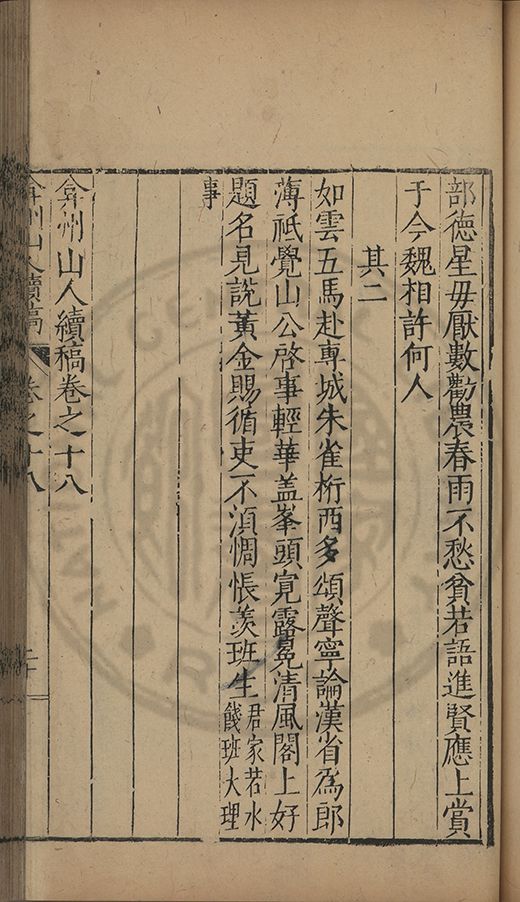 部徳星毋厭數勸農春雨不愁貧若語進賢應上賞
于今魏相許何人
其二
如雲五馬赴專城朱雀桁西多頌聲寧論漢省為郎
薄祗覺山公啓事輕華盖峯頭寛露冕清風閣上好
題名見說黃金賜循吏不湏惆悵羨班生君家若水
餞班大理
事
弇州山人續稿卷之十八
弇州山人續稿 卷之十八
二十